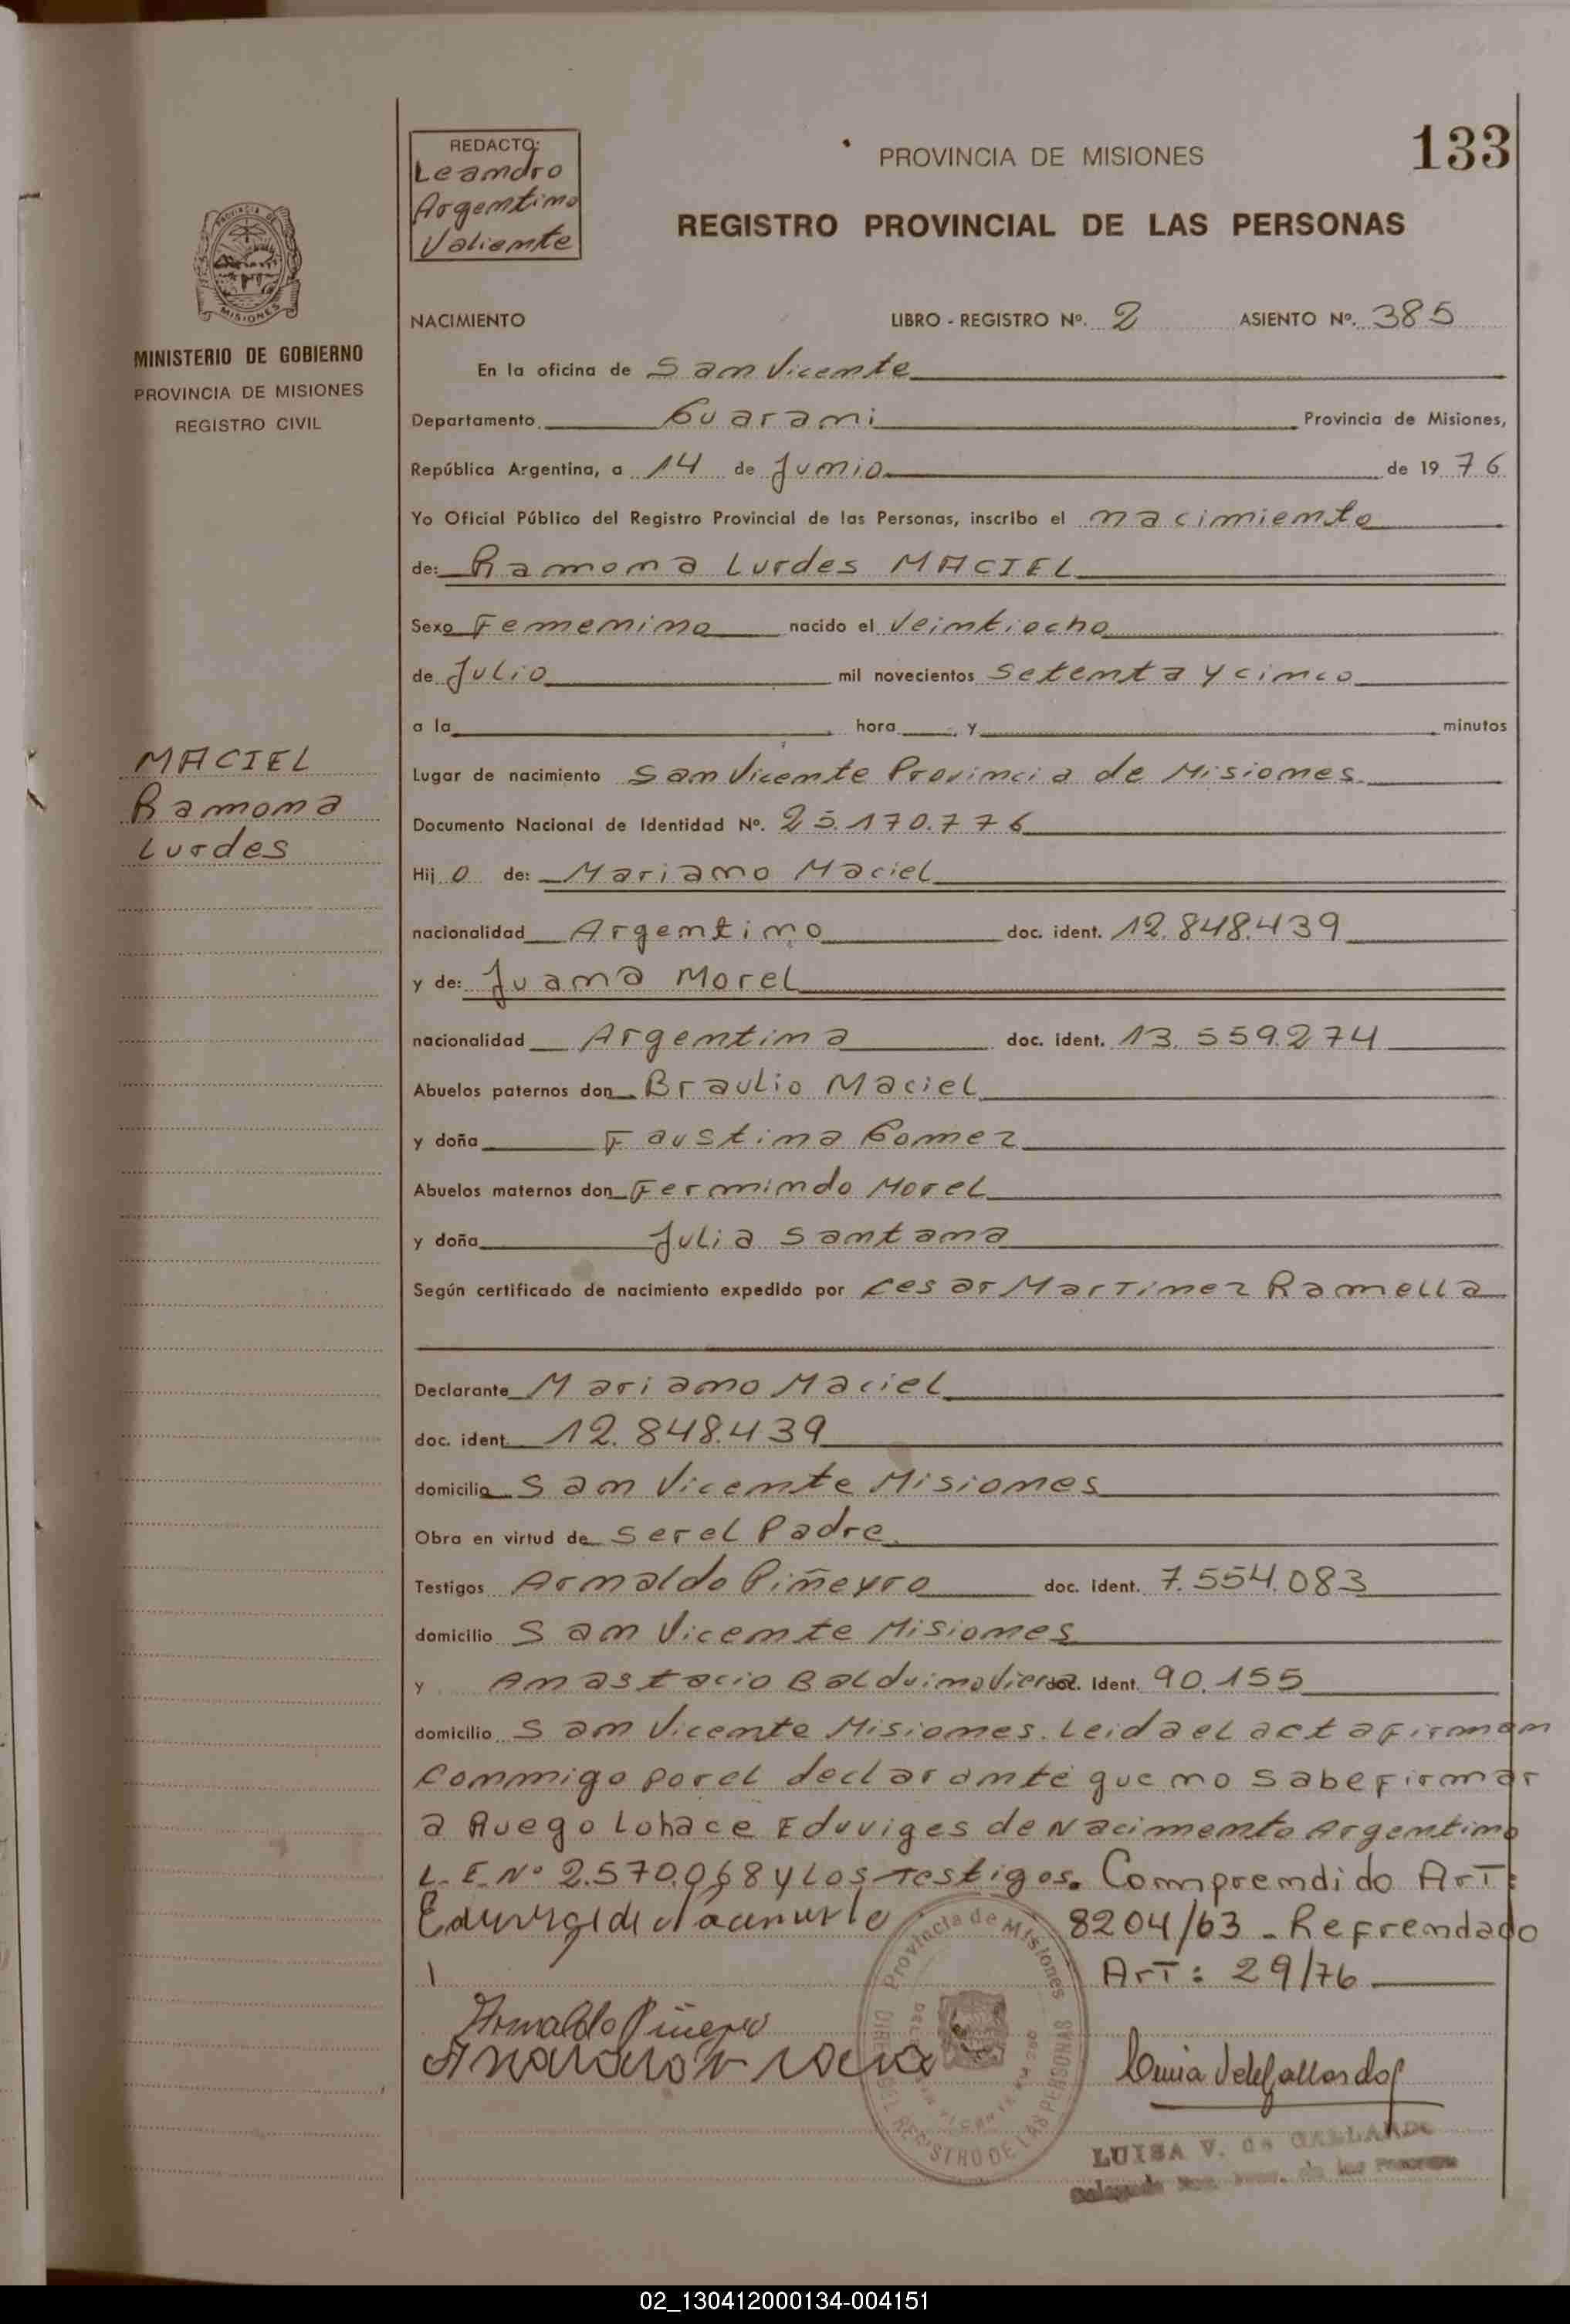 133
REDACTO:
Leandro
Argentino
Valiente
PROVINCIA DE MISIONES
REGISTRO PROVINCIAL DE LAS PERSONAS
PROVINCIA DE
MISIONES
MINISTERIO DE GOBIERNO
PROVINCIA DE MISIONES
REGISTRO CIVIL
NACIMIENTO LIBRO - REGISTRO Nº. 2 ASIENTO Nº. 385
En la oficina de San Vicente
Departamento Guarani Provincia de Misiones,
República Argentina, a 14 de Junio de 19 76
Yo Oficial Público del Registro Provincial de las Personas, inscribo el nacimiento
de: Ramona Lurdes MACIEL
Sexo Femenino nacido el Veintiocho
de Julio mil novecientos Setenta y cinco
a la hora y minutos
MACIEL
Ramona
Lurdes
Lugar de nacimiento San Vicente Provincia de Misiones.
Documento Nacional de Identidad Nº. 25.170.776
Hij o de: Mariano Maciel
nacionalidad Argentino doc. ident. 12.848.439
y de: Juana Morel
nacionalidad Argentina doc. ident. 13.559.274
Abuelos paternos don Braulio Maciel
y doña Faustina Gomez
Abuelos maternos don Fermindo Morel
y doña Julia Santana
Según certificado de nacimiento expedido por Cesar Martinez Ramella
Declarante Mariano Maciel
doc. ident. 12.848.439
domicilio San Vicente Misiones
Obra en virtud de Ser el Padre
Testigos Arnaldo Piñeyro doc. ident. 7.554.083
domicilio San Vicente Misiones
y Anastacio Balduino Viera doc. ident. 90.155
domicilio San Vicente Misiones. Leida el acta firman
Conmigo por el declarante que no sabe firmar
a Ruego lo hace Eduviges de Nacimento Argentino
L.E.Nº 2.570.068 y los Testigos. Comprendido Art:
8204/63 - Refrendado
Art: 29/76
Arnaldo Piñeyro
Provincia de Misiones
REGISTRO DE LAS PERSONAS
LUISA V. de GALLARDO
02_130412000134-004151